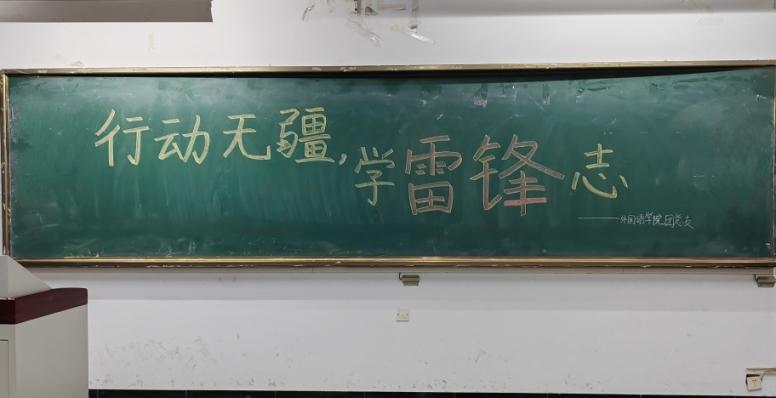 行动无疆，学雷锋志
——外国语学院团总支